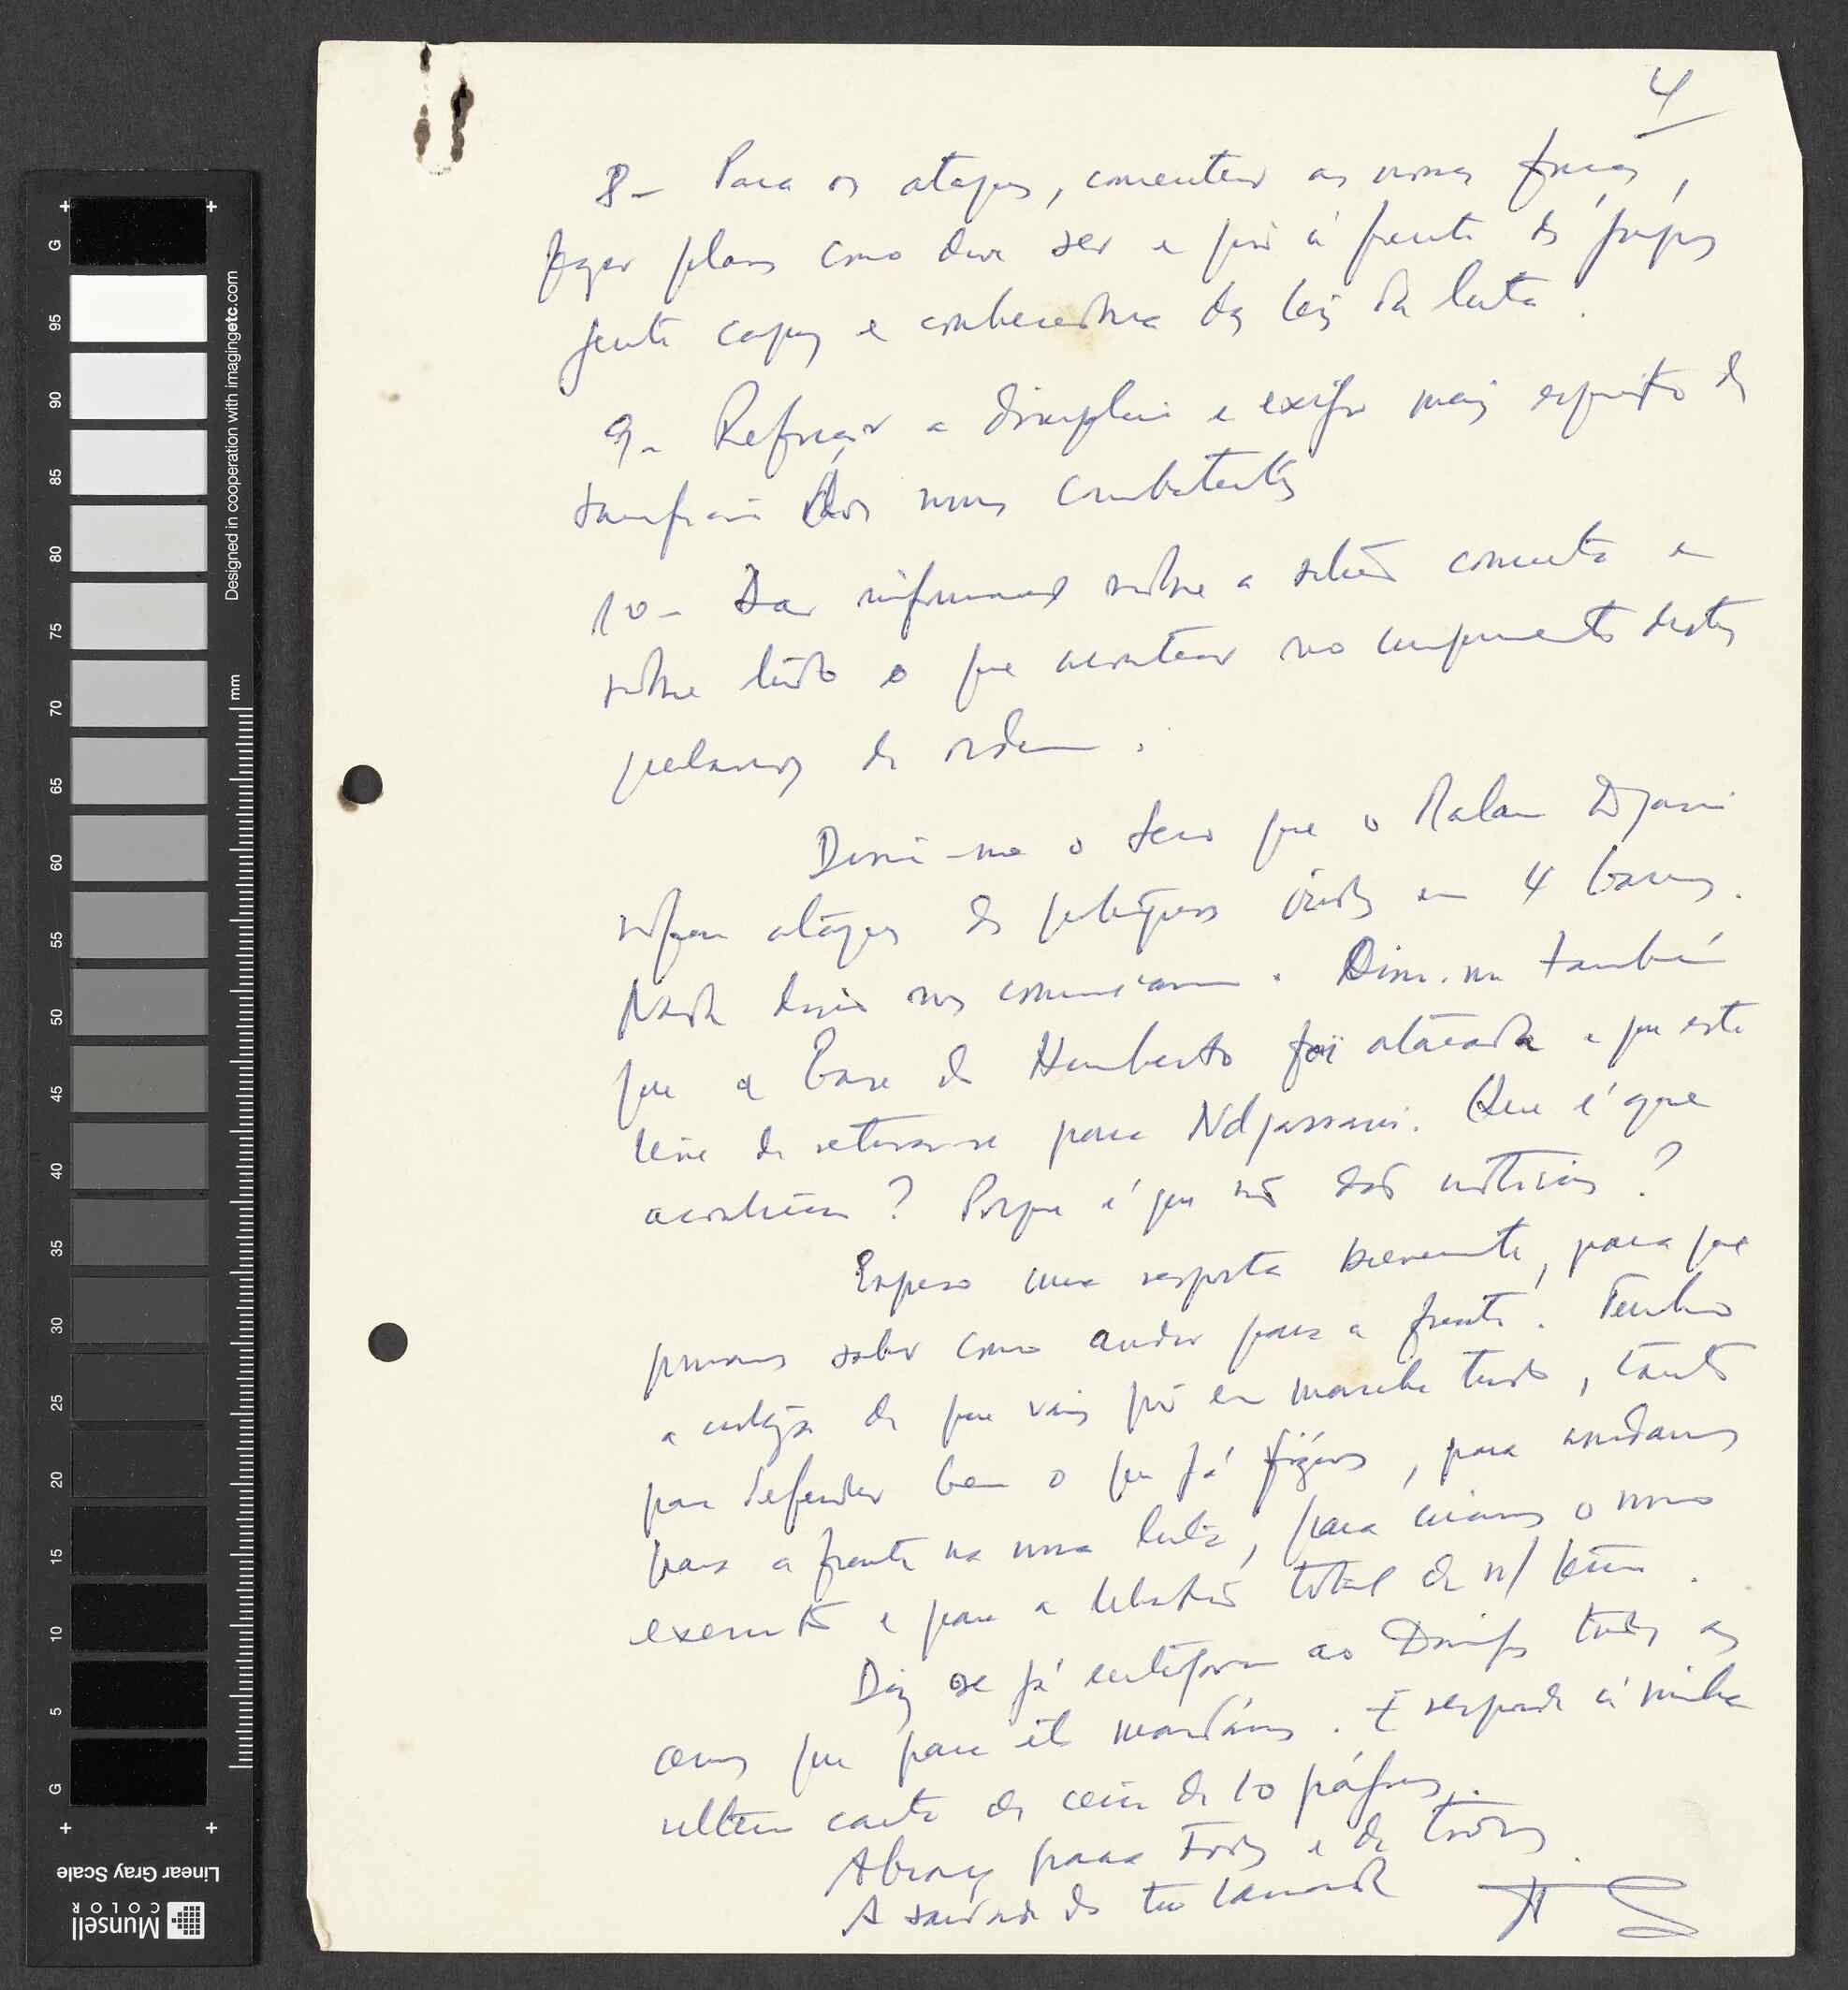 4
8- Para os ataques, concentrar as nossas forças,
fazer planos como deve ser e pôr à frente dos grupos
gente capaz e conhecedora das leis da luta.
9- Reforçar a disciplina e exigir mais espírito de
sacrifício dos nossos combatentes
10- Dar informações sobre a situação concreta e
sobre tudo o que acontecer no cumprimento destas
palavras de ordem.
Disse-me o que o Malam Djassi
sofreu ataques dos portugueses em 4 barcos.
Nada disso nos comunicaram. Disse-me também
que a base do Humberto foi atacada e que este
teve de retirar-se para Ndjassani. Que é que
aconteceu? Porque é que não dão notícias?
Espero uma resposta brevemente, para que
possamos saber como andar para a frente. Tenho
a certeza de que vais pôr em marcha tudo, tanto
para defender bem o que já fizémos, para andarmos
para a frente na nossa luta, para criarmos o nosso
exercito e para a libertação total da n/ terra.
Diz se já entregaram ao Domingos todas as
armas que para ele mandámos. E responde à minha
ultima carta de cerca de 10 páginas.
Abraços para todos e de todos.
A saudade do teu camarada
95
90
85
80
75
70
65
60
55
50
45
40
35
30
25
20
15
10
5
G
G
mm
Designed in cooperation with imagingetc.com
Linear Gray Scale
Munsell
COLOR